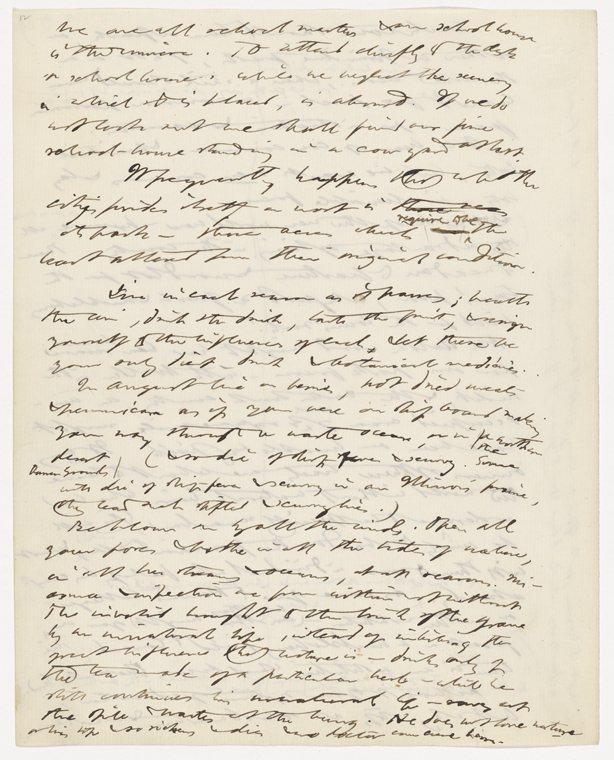 12
We are all school masters & our school house
is the universe. To attend chiefly to the desk
or school house, while we neglect the scenery
in which it is placed, is absurd. If we do
not look out we shall find our fine
school-house standing in a cow yard at last.
It frequently happens that what the
city prides itself on most is
its park — those acres which require to be the
least altered from their original condition.
Live in each season as it passes; breathe
the air, drink the drink, taste the fruit, & resign
yourself to the influences of each. Let these be
your only diet-drink & botanical medicines.
In August live on berries, not dried meats
& pemmican as if you were on shipboard making
your way through a waste ocean, or in the northern
desert & so die of ship fever & scurvy. Some
will die of ship fever & scurvy in an Illinois prairie,
they lead such stifled & scurvy lives.)
Be blown on by all the winds. Open all
your pores & bathe in all the tides of nature,
in all her streams & oceans, at all seasons. Mi-
asma & infection are from within not without.
The invalid brought to the brink of the grave
by an unnatural life, instead of imbibing the
great influence that nature is — drinks only of
the tea made of a particular herb — while he
still continues his unnatural life — saves at
the spile & wastes at the bung. He does not love nature
or his life & so sickens & dies & no doctor can cure him.